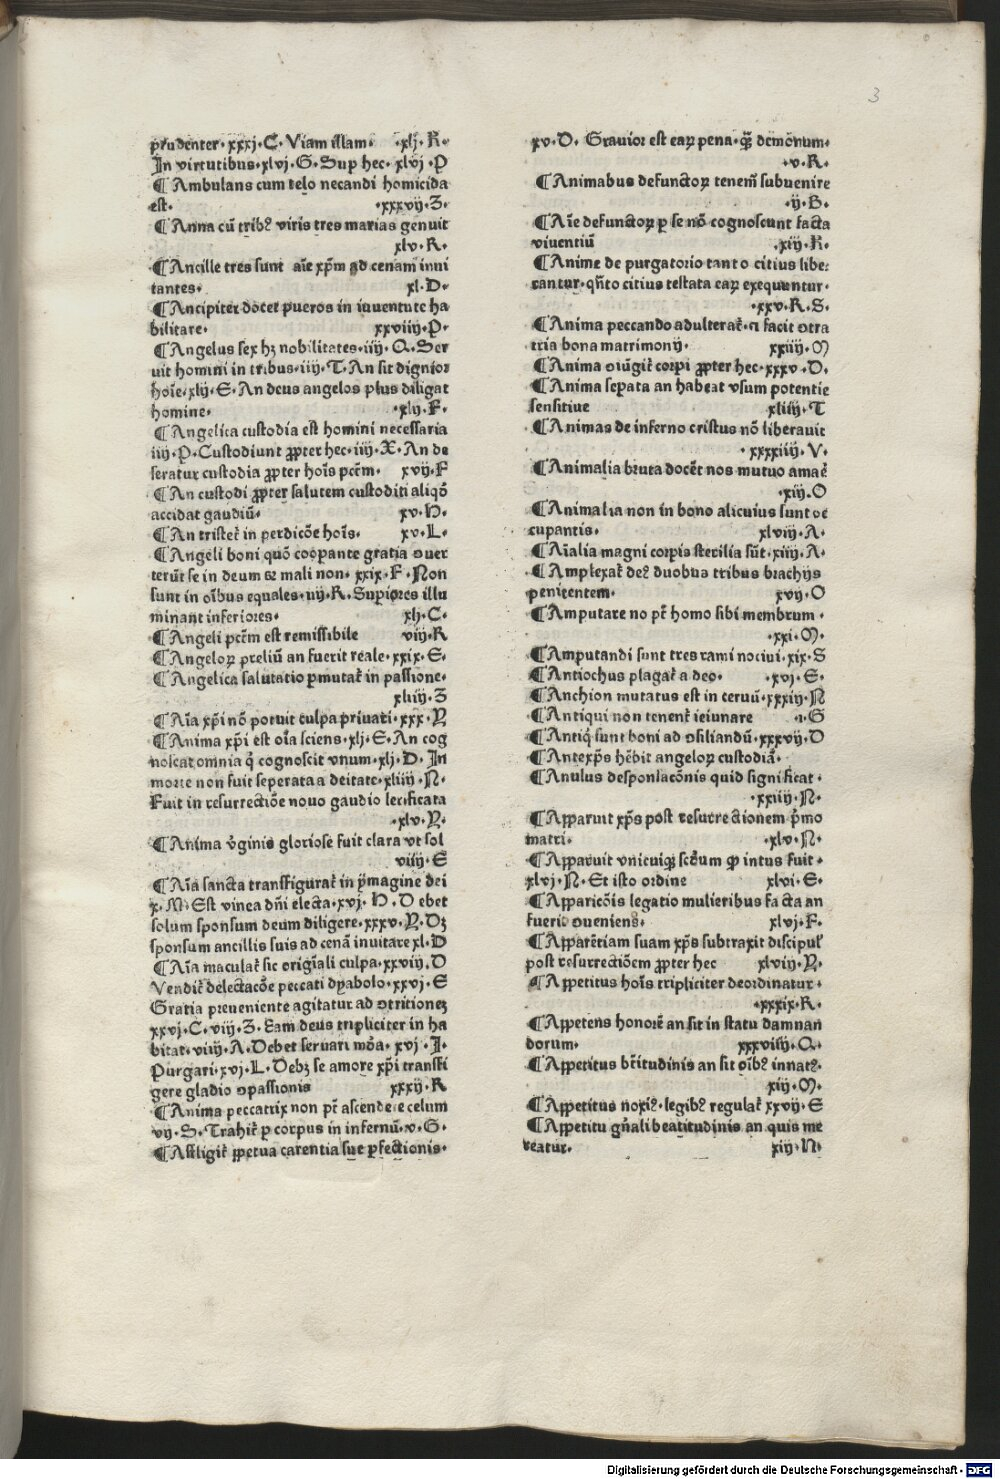 3
prudenter·xxxj·C·Viam illam· ·xlj·R·
In virtutibus·xlvj·G·Sup hec·xlvj·P
¶Ambulans cum telo necandi homicida
est· ·xxxvij·Z·
¶Anna cū tribꝰ viris tres marias genuit
xlv·R·
¶Ancille tres sunt aīe xp̄m ad cenam inui
tantes· xl·D·
¶Ancipiter docet pueros in iuuentute ha
bilitare· xxviiij·P·
¶Angelus sex hꝫ nobilitates·iiij·Q·Ser
uit homini in tribus·iiij·T·An sit dignior
hoīe·xlij·E·An deus angelos plus diligat
homine· ·xlij·F·
¶Angelica custodia est homini necessaria
iiij·P·Custodiunt ꝓpter hec·iiij·X·An de
seratur custodia ꝓpter hoīs pctm̄· xvij·F
¶An custodi ꝓpter salutem custoditi aliqō
accidat gaudiū· xv·H·
¶An tristet̄ in perdicōe hoīs· xv·L·
¶Angeli boni quō cooꝑante gratia ꝯuer
terūt se in deum ⁊ mali non·xxix·F·Non
sunt in oībus equales·iiij·R·Supiores illu
minant inferiores· xlj·C·
¶Angeli pctm̄ est remissibile viij·R
¶Angeloꝝ preliū an fuerit reale·xxix·E·
¶Angelica salutatio ꝑmutat̄ in passione·
xliiij·Z
¶Aīa xp̄i nō potuit culpa priuari·xxx·Y
¶Anima xp̄i est oīa sciens·xlj·E·An cog
noscat omnia q̄ cognoscit vnum·xlj·D·In
morte non fuit seperata a deitate·xliiij·N·
Fuit in resurrectiōe nouo gaudio letificata
·xlv·Y·
¶Anima v̄ginis gloriose fuit clara vt sol
viiij·E
¶Aīa sancta transfigurat̄ in ymagine dei
x·M·Est vinea dn̄i electa·xvj·H·Debet
solum sponsum deum diligere·xxxv·Y·Dꝫ
sponsum ancillis suis ad cenā inuitare xl·D
¶Aīa maculat̄ sic origīali culpa·xxviij·D
Vendit̄ delectacōe peccati dyabolo·xxvj·E
Gratia preueniente agitatur ad ꝯtritionez
xxvj·C·viij·Z·Eam deus tripliciter in ha
bitat·viiij·A·Debet seruari mōa·xvj·I·
Purgari·xvj·L·Debꝫ se amore xp̄i transfi
gere gladio ꝯpassionis xxxij·R
¶Anima peccatrix non pt̄ ascendere celum
vij·S·Trahit̄ ꝑ corpus in infernū·v·G·
¶Affligit̄ ꝑpetua carentia sue ꝑfectionis·
xv·D·Grauior est eaꝝ pena·q̄ꝫ demonum·
·v·R·
¶Animabus defunctoꝝ tenem̄ subuenire
·ij·B·
¶Aīe defunctoꝝ ꝑ se nō cognoscunt facta
viuentiū ·xiij·R·
¶Anime de purgatorio tanto citius libe⸗
rantur·qn̄to citius testata eaꝝ exequuntur·
·xxv·R·S·
¶Anima peccando adulterat̄·⁊ facit ꝯtra
tria bona matrimonij· xxiiij·M
¶Anima ꝯiūgit̄ corpi ꝓpter hec·xxxv·D·
¶Anima seꝑata an habeat vsum potentie
sensitiue xliiij·T
¶Animas de inferno cristus nō liberauit
·xxxxiiij·V·
¶Animalia bruta docēt nos mutuo amar̄
·xiij·O
¶Animalia non in bono alicuius sunt oc
cupantis· xlviij·A·
¶Aīalia magni corpis sterilia sūt·xiiij·A·
¶Amplexat̄ deꝰ duobus tribus brachijs
penitentem· xvij·O
¶Amputare no pt̄ homo sibi membrum·
·xxi·M·
¶Amputandi sunt tres rami nociui·xix·S
¶Antiochus plagat̄ a deo· ·xvj·E·
¶Anchion mutatus est in ceruū·xxxiij·N
¶Antiqui non tenent̄ ieiunare ·ı·G
¶Antiq̄ sunt boni ad ꝯsiliandū·xxxvij·D
¶Antexp̄s hēbit angeloꝝ custodiā·
¶Anulus desponsacōnis quid significat·
·xxiiij·N·
¶Apparuit xp̄s post resurrectionem p̄mo
matri· ·xlv·N·
¶Apparuit vnicuiqꝫ sctō̄um ꝙ intus fuit·
xlvj·N·Et isto ordine xlvi·E·
¶Apparicōis legatio mulieribus facta an
fuerit ꝯueniens· xlvj·F·
¶Apparētiam suam xp̄s subtraxit discipul̄
post resurrectiōem ꝓpter hec xlviij·Y·
¶Appetitus hoīs tripliciter deordinatur·
·xxxix·R·
¶Appetens honorē an sit in statu damnan
dorum· xxxviiij·Q·
¶Appetitus bt̄itudinis an sit oībꝰ innatꝰ·
xiij·M·
¶Appetitus noxiꝰ·legibꝰ regulat̄ xxvij·E
¶Appetitu gn̄ali beatitudinis an quis me
reatur· xiij·N·
Digitalisierung gefördert durch die Deutsche Forschungsgemeinschaft - DFG